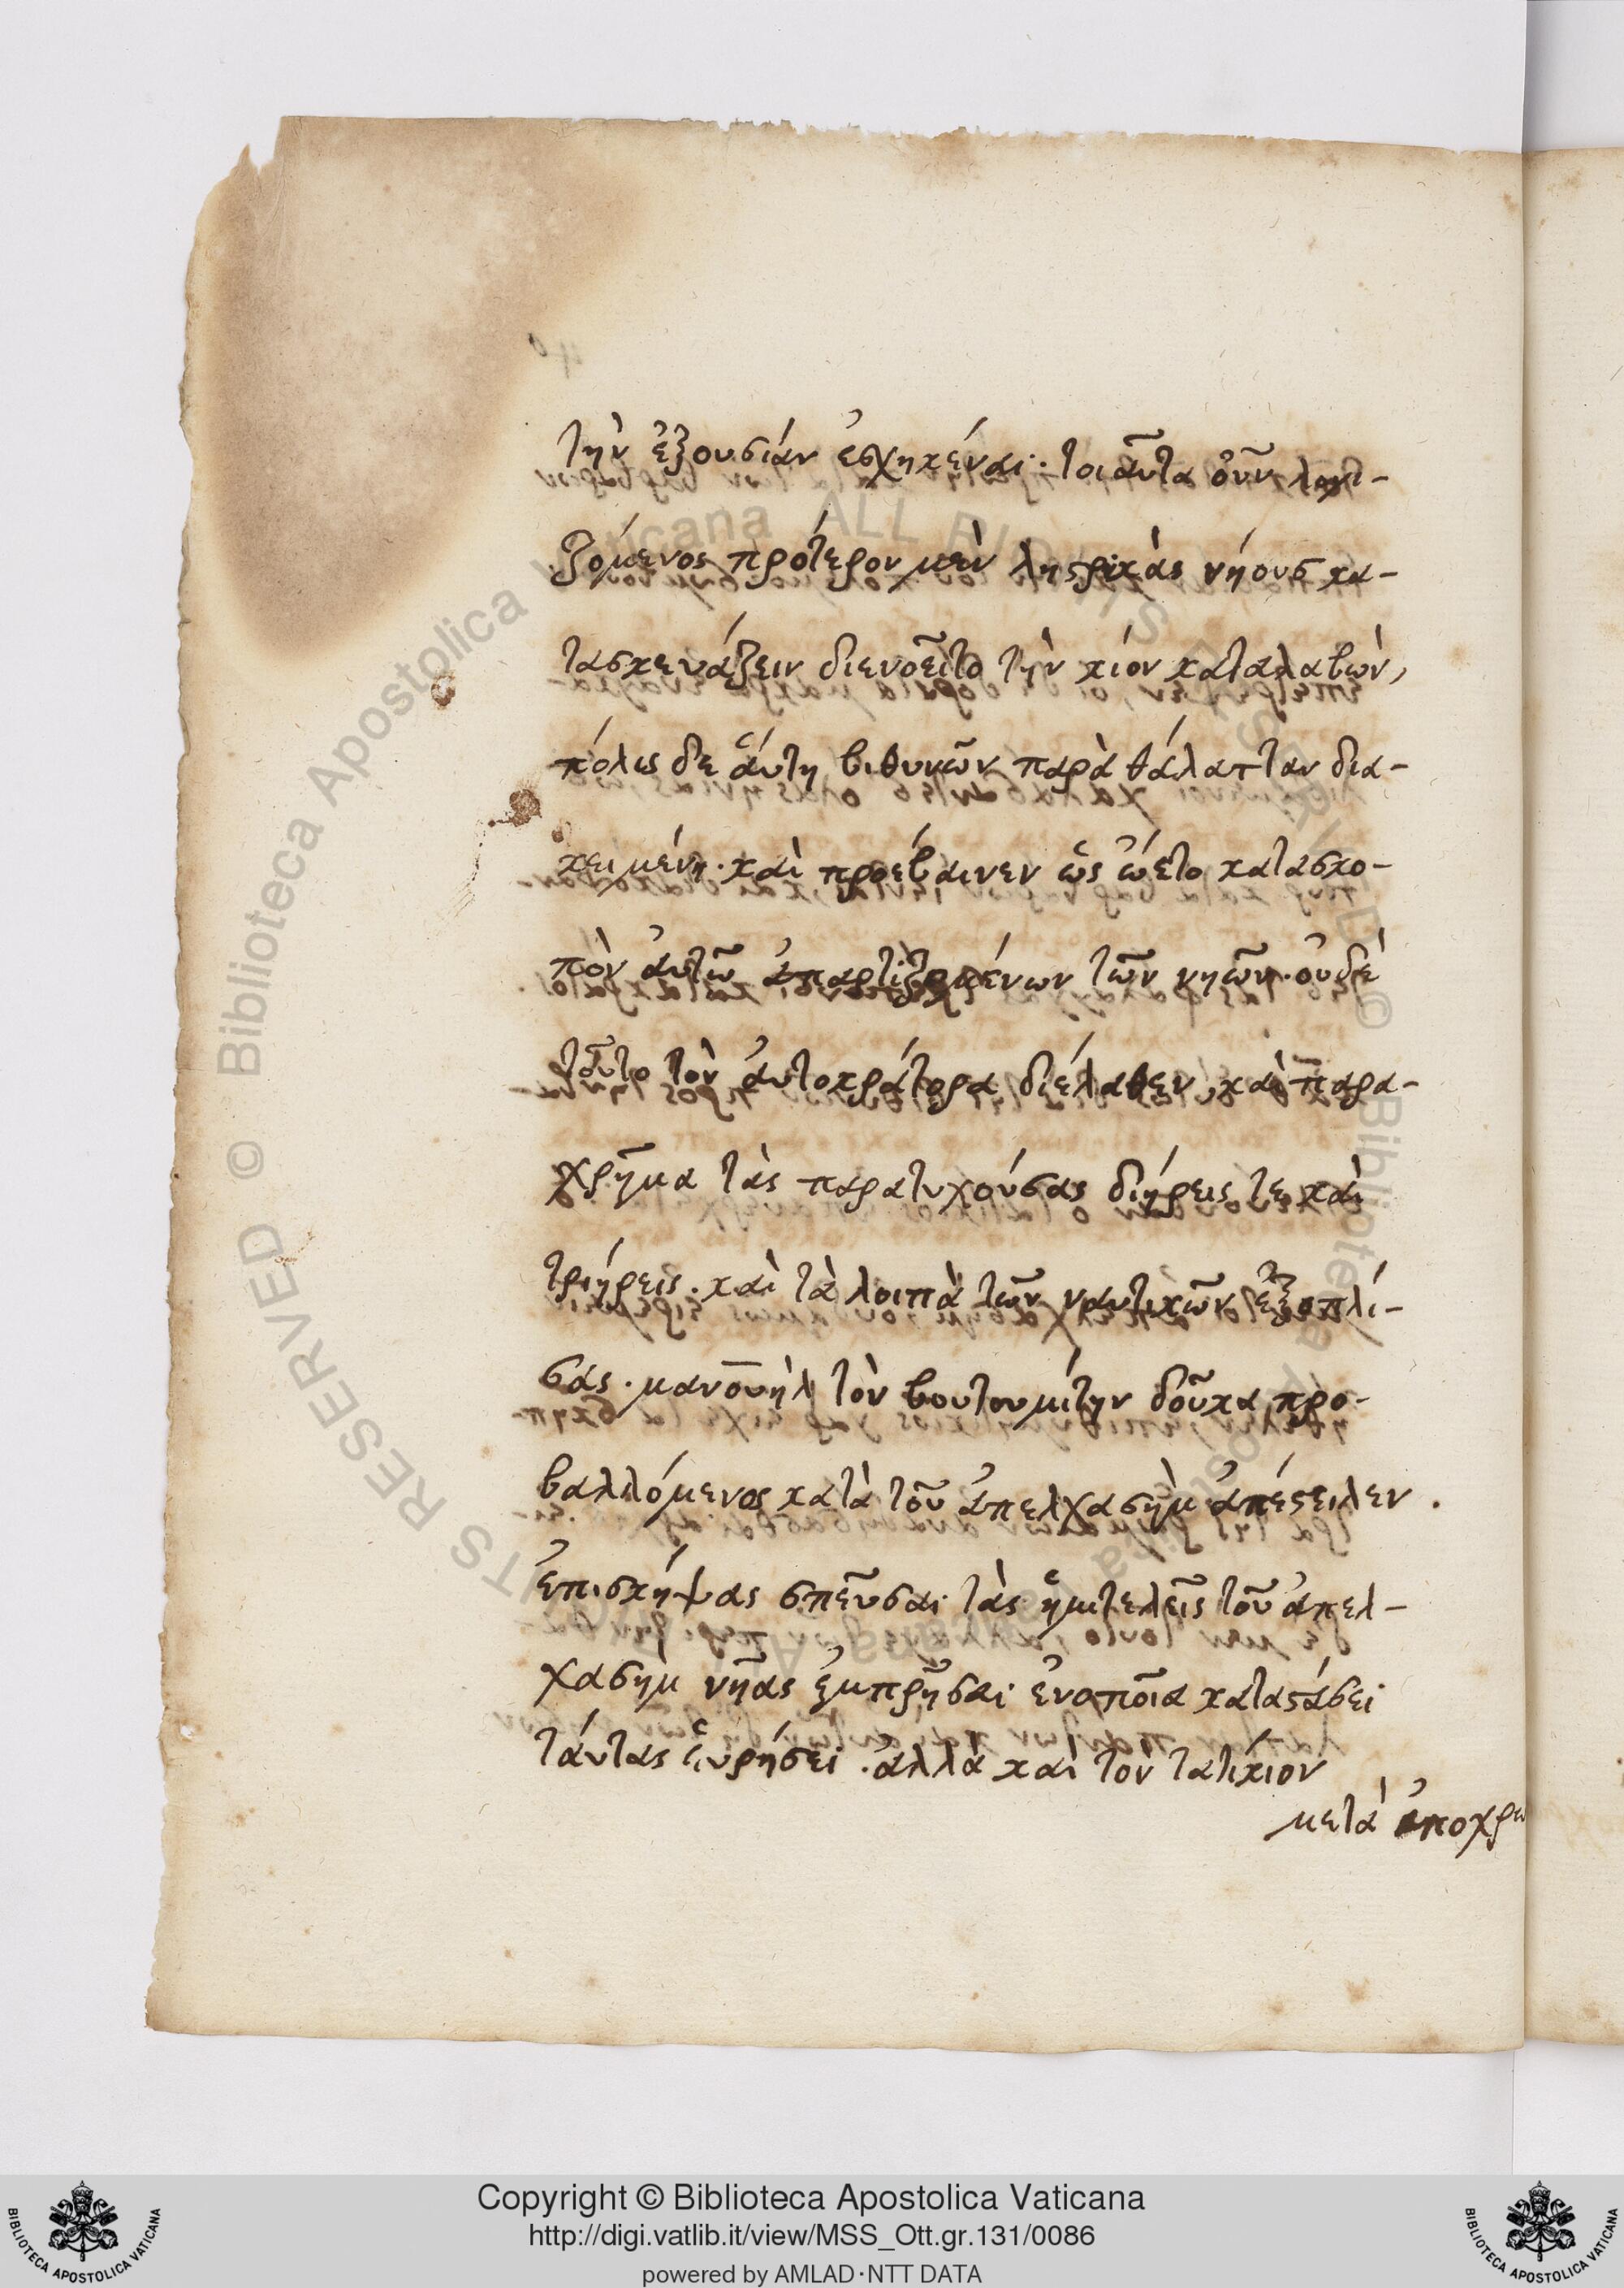 τὴν ἐξουσίαν ἐσχηκέναι· τοιαῦτα οὖν λογι-
ζόμενος πρότερον μὲν ληστρικὰς νήους κα-
τασκευάζειν διενοεῖτο τὴν κίον καταλαβών,
πόλις δε ἁύτη βιθυνῶν παρὰ θάλατταν δια-
κειμένη· καὶ προέβαινεν ὡς ὤετο κατασκο-
πὸν ἀυτῶ ἀπαρτιζομένων τῶν νηῶν· ουδὲ
τοῦτο τὸν ἀυτοκράτορα διέλαθεν, καὶ παρα-
χρῆμα τὰς παρατυχούσας διήρεις τε καὶ
τριήρεις. καὶ τὰ λοιπὰ τῶν ναυτικῶν ἐξοπλί-
σας. μανουὴλ τὸν βουτουμίτην δοῦκα προ-
βαλλόμενος κατὰ τοῦ ἀπελχασὴμ ἀπέστειλεν.
ἐπισκήψας σπεῦσαι τὰς ἡμιτελεῖς τοῦ ἀπελ-
χασημ νῆας ἐμπρῆσαι ἐνοποῖα καταστάσει
τάυτας ἑυρήσει. ἀλλὰ καὶ τὸν τατίκιον
μετὰ ἀποχρω
Copyright © Biblioteca Apostolica Vaticana
http://digi.vatlib.it/view/MSS_Ott.gr.131/0086
powered by AMLAD·NTT DATA
BIBLIOTECA APOSTOLICA VATICANA
BIBLIOTECA APOSTOLICA VATICANA